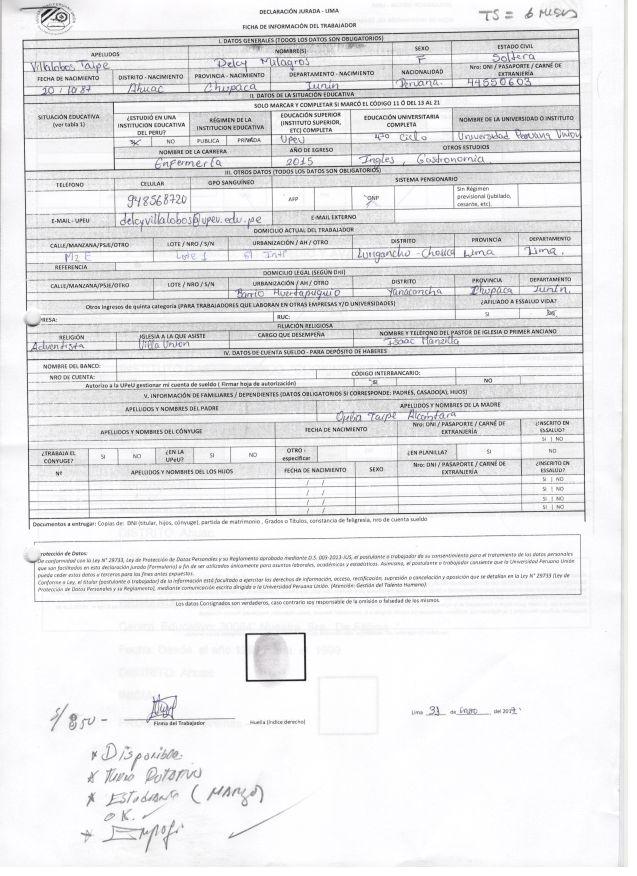 DECLARACIÓN JURADA - LIMA
TS = 6 meses
FICHA DE INFORMACIÓN DEL TRABAJADOR
I. DATOS GENERALES (TODOS LOS DATOS SON OBLIGATORIOS)
APELLIDOS NOMBRE(S) SEXO ESTADO CIVIL
Villalobos Taipe Delcy Milagros F Soltera
FECHA DE NACIMIENTO DISTRITO - NACIMIENTO PROVINCIA - NACIMIENTO DEPARTAMENTO - NACIMIENTO NACIONALIDAD Nro: DNI / PASAPORTE / CARNÉ DE EXTRANJERÍA
20 / 10 / 87 Ahuac Chupaca Junín Peruana. 44550603
II. DATOS DE LA SITUACIÓN EDUCATIVA
SOLO MARCAR Y COMPLETAR SI MARCÓ EL CÓDIGO 11 Ó DEL 13 AL 21
SITUACIÓN EDUCATIVA (ver tabla 1) ¿ESTUDIÓ EN UNA INSTITUCION EDUCATIVA DEL PERU? RÉGIMEN DE LA INSTITUCION EDUCATIVA EDUCACIÓN SUPERIOR (INSTITUTO SUPERIOR, ETC) COMPLETA EDUCACIÓN UNIVERSITARIA COMPLETA NOMBRE DE LA UNIVERSIDAD O INSTITUTO
NO PUBLICA PRIVADA UPeU 4to Ciclo Universidad Peruana Union
NOMBRE DE LA CARRERA AÑO DE EGRESO OTROS ESTUDIOS
Enfermería 2015 Ingles, Gastronomia.
III. OTROS DATOS (TODOS LOS DATOS SON OBLIGATORIOS)
TELÉFONO CELULAR GPO SANGUÍNEO SISTEMA PENSIONARIO
948568720 AFP ONP Sin Régimen previsional (jubilado, cesante, etc).
E-MAIL - UPEU delcyvillalobos@upeu.edu.pe E-MAIL EXTERNO
DOMICILIO ACTUAL DEL TRABAJADOR
CALLE/MANZANA/PSJE/OTRO LOTE / NRO / S/N URBANIZACIÓN / AH / OTRO DISTRITO PROVINCIA DEPARTAMENTO
Mz E Lote 1 El Inti Lurigancho - Chosica Lima Lima.
REFERENCIA
DOMICILIO LEGAL (SEGÚN DNI)
CALLE/MANZANA/PSJE/OTRO LOTE / NRO / S/N URBANIZACIÓN / AH / OTRO DISTRITO PROVINCIA DEPARTAMENTO
Barrio Huertapuquio Yanacancha Chupaca Junín.
Otros Ingresos de quinta categoría (PARA TRABAJADORES QUE LABORAN EN OTRAS EMPRESAS Y/O UNIVERSIDADES) ¿AFILIADO A ESSALUD VIDA?
RESA: RUC: SI
FILIACIÓN RELIGIOSA
RELIGIÓN IGLESIA A LA QUE ASISTE CARGO QUE DESEMPEÑA NOMBRE Y TELÉFONO DEL PASTOR DE IGLESIA O PRIMER ANCIANO
Adventista Villa Union Isaac Manzilla
IV. DATOS DE CUENTA SUELDO - PARA DEPÓSITO DE HABERES
NOMBRE DEL BANCO:
NRO DE CUENTA: CÓDIGO INTERBANCARIO:
Autorizo a la UPeU gestionar mi cuenta de sueldo ( Firmar hoja de autorización) SI NO
V. INFORMACIÓN DE FAMILIARES / DEPENDIENTES (DATOS OBLIGATORIOS SI CORRESPONDE: PADRES, CASADO(A), HIJOS)
APELLIDOS Y NOMBRES DEL PADRE APELLIDOS Y NOMBRES DE LA MADRE
Taipe Alcantara
APELLIDOS Y NOMBRES DEL CÓNYUGE FECHA DE NACIMIENTO Nro: DNI / PASAPORTE / CARNÉ DE EXTRANJERÍA ¿INSCRITO EN ESSALUD?
SI | NO
¿TRABAJA EL CÓNYUGE? SI NO ¿EN LA UPeU? SI NO OTRO : especificar ¿EN PLANILLA? SI NO
Nº APELLIDOS Y NOMBRES DEL LOS HIJOS FECHA DE NACIMIENTO SEXO Nro: DNI / PASAPORTE / CARNÉ DE EXTRANJERÍA ¿INSCRITO EN ESSALUD?
/ / SI | NO
/ / SI | NO
/ / SI | NO
/ / SI | NO
Documentos a entregar: Copias de: DNI (titular, hijos, cónyuge), partida de matrimonio , Grados o Títulos, constancia de feligresía, nro de cuenta sueldo
rotección de Datos:
De conformidad con la Ley N° 29733, Ley de Protección de Datos Personales y su Reglamento aprobado mediante D.S. 003-2013-JUS, el postulante o trabajador da su consentimiento para el tratamiento de los datos personales
que son facilitados en esta declaración jurada (Formulario) a fin de ser utilizados únicamente para asuntos laborales, académicos y estadísticos. Asimismo, el postulante o trabajador consiente que la Universidad Peruana Unión
pueda ceder estos datos a terceros para los fines antes expuestos.
Conforme a Ley, el titular (postulante o trabajador) de la información está facultado a ejercitar los derechos de información, acceso, rectificación, supresión o cancelación y oposición que se detallan en la Ley N° 29733 (Ley de
Protección de Datos Personales y su Reglamento), mediante comunicación escrita dirigida a la Universidad Peruana Unión. (Atención: Gestión del Talento Humano).
Los datos Consignados son verdaderos, caso contrario soy responsable de la omisión o falsedad de los mismos.
S/ 850 -
Firma del Trabajador Huella (índice derecho) Lima 31 de Enero del 2017.
* Disponible.
* Turno Rotativo
* Estudiante (Marzo)
OK.
*